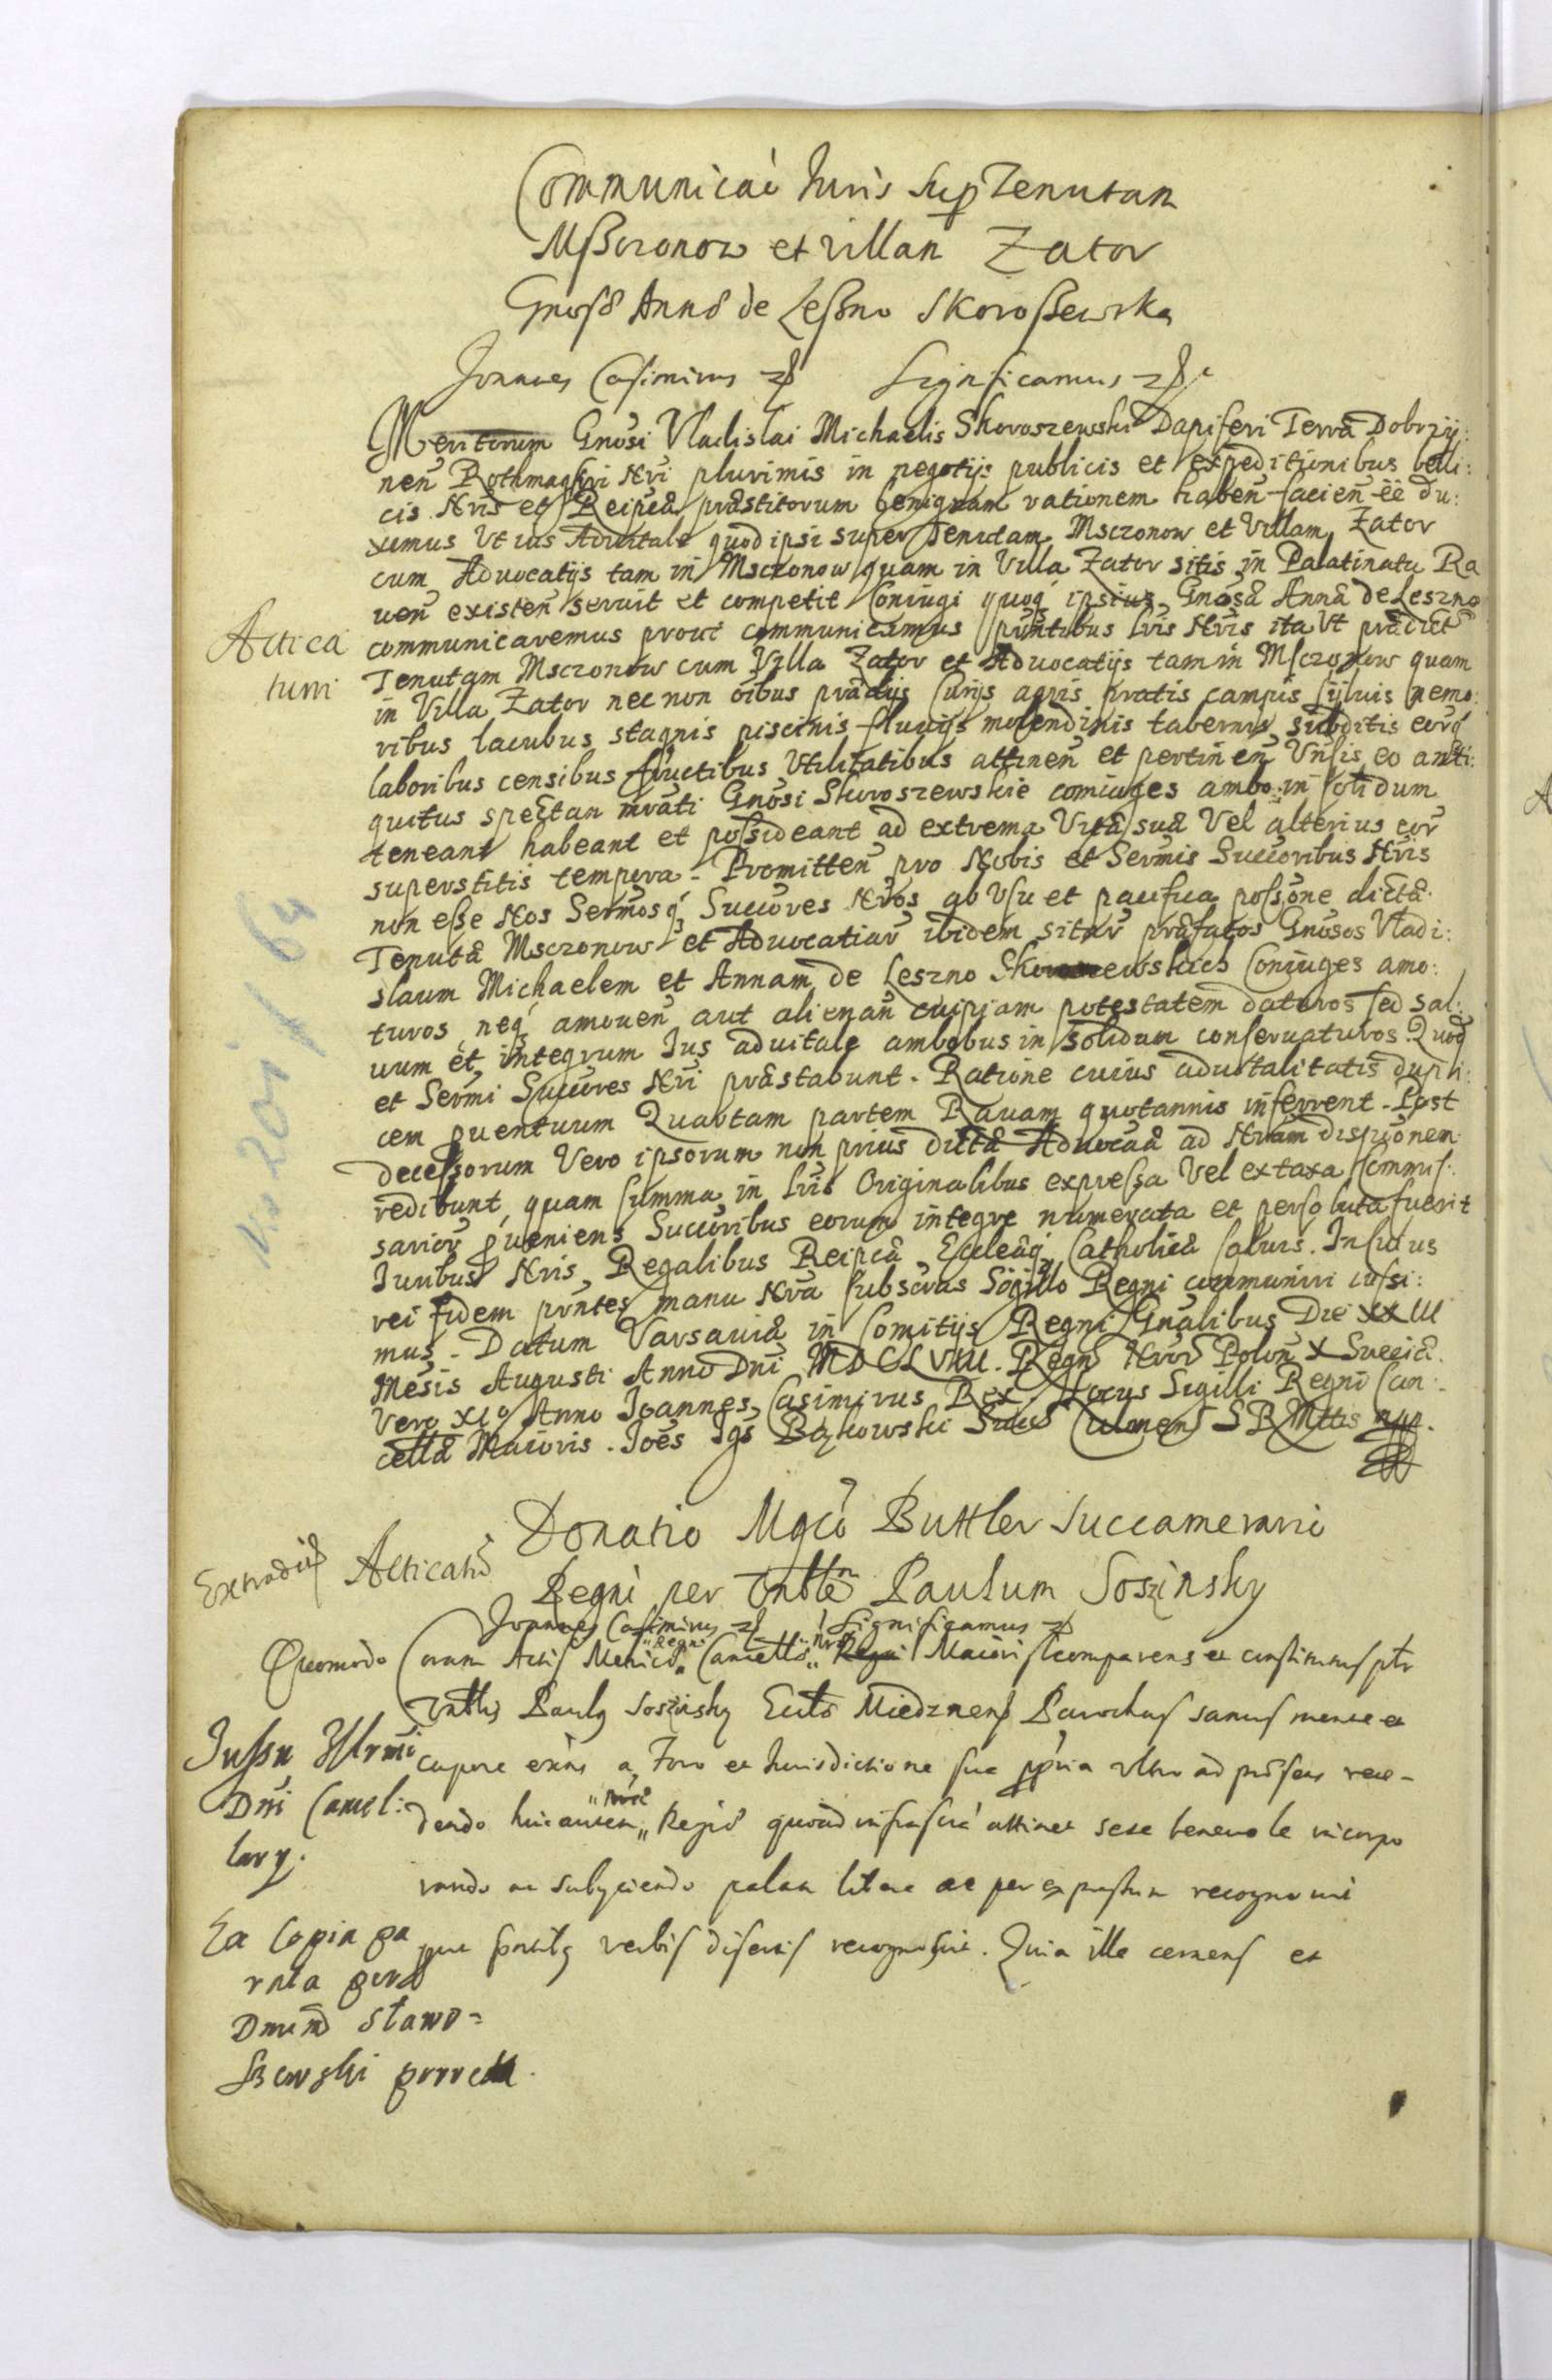 Communicaĉ Iuris sup Tenutam
Msczonow et villam Zator
Gnosæ Annæ de Leszno Skoroszewska
Joannes Casimirus Significamus
Meritorum Gnosi Vladislai Michaelis Skoroszewski Dapiferi Terræ Dobrzÿ:
nen̄ Rothmagistri Nri plurimis in negotijs publicis et expeditionibus belli:
cis Nris et Reipcæ præstitorum benignam rationem haben̄ facien̄ ēē du:
ximus Ut ius Advitale quod ipsi super Tenutam Msczonow et Villam Zator
cum Advocatijs tam in Msczonow quam in Villa Zator sitis in Palatinatu Ra
uen̄ existen̄ seruit et competit Coniugi quoq́ ipsius Gnosæ Annæ de Leszno
Actica
tum
communicaremus prout communicamus pn̄tibus Lris Nris ita Ut prædict
Tenutam Msczonow cum Villa Zator et Advocatijs tam in Msczonow quam
in Villa Zator nec non oībus prædijs Curijs agris pratis campis syluis nemo:
ribus lacubus stagnis piscinis fluuijs molendinis tabernis subditis eorq́
laboribus censibus fructibus Utilitatibus attinen̄ et pertinen̄ Vnsis eo anti:
quitus spectan mrati Gnosi Skoroszewskie coniuges ambo in solidum
teneant habeant et possideant ad extrema Vitæ suæ Vel alterius eor̄
superstitis tempora. Promitten̄ pro Nobis et Sermis Succoribus Nris
non esse Nos Sermosq́ Succores Nros ab Vsu et pacifica possone dictæ
Tenutæ Msczonow et Advocatiar̄ ibidem sitar̄ præfatos Gnosos Vladi:
slaum Michaelem et Annam de Leszno Skoroszewskies Coniuges amo:
turos neq́ amouen̄ aut alienan̄ cuipiam potestatem daturos sed sal:
uum et integrum Ius aduitale ambobus in solidum conseruaturos. Quod
et Sermi Succores Nri præstabunt. Ratione cuius aduitalitatis dupli:
cem puentuum Quartam partem Rauam quotannis inferrent. Post
decessorum Vero ipsorum non prius dictæ Aduocaæ ad Nram dispōnem
redibunt, quam summa in Lris Originalibus expressa Vel ex taxa Commis:
sarior̄ pueniens Succoribus eorum integre numerata et persoluta fuerit
Iuribus Nris Regalibus Reipcæ Eccleæq́ Catholicæ saluis. In cuius
rei fidem pn̄tes manu Nra subscras Sigillo Regni communiri iussi:
mus. Datum Varsauiæ in Comitijs Regni Gn̄alibus Die XXIII
Mēsis Augusti Anno Dni MDCLVIII. Regn Nror̄ Polon̄ X Sueciæ
Vero XIº Anno Joannes Casimirus Rex. Locus Sigilli Regni Can:
cellæ Maioris. Joēs Igs Bąkowski Succ Culmen S R Mttis mpp.
Extradit Acticatū
Donatio Mgco Buttler Succamerario
Regni per Vnblem Paulum Soszinsky
Joannes Casimirus Significamus
Quomodo Coram Actis Metrices Regni Cancellæ Nræ Maioris comparens et constitutus ptr
Vnblis Paulus Soszinsky Eccle Miednens Parochus sanus mente et
Jussu Illrmi
Dni Cancel:
lary.
corpore exīns a Foro et Iurisdictione sua ppria vltro ad præsens rece-
dendo huic autem Regio quoad infrascra attinet sese beneuole incorpo
rando ac subyciendo palam libere ac per expressum recognouit
Ex Copia pa
rata per
Dnum Stawo=
szewski
que sponte verbis disertis recognoscit. Quia ille cernens et